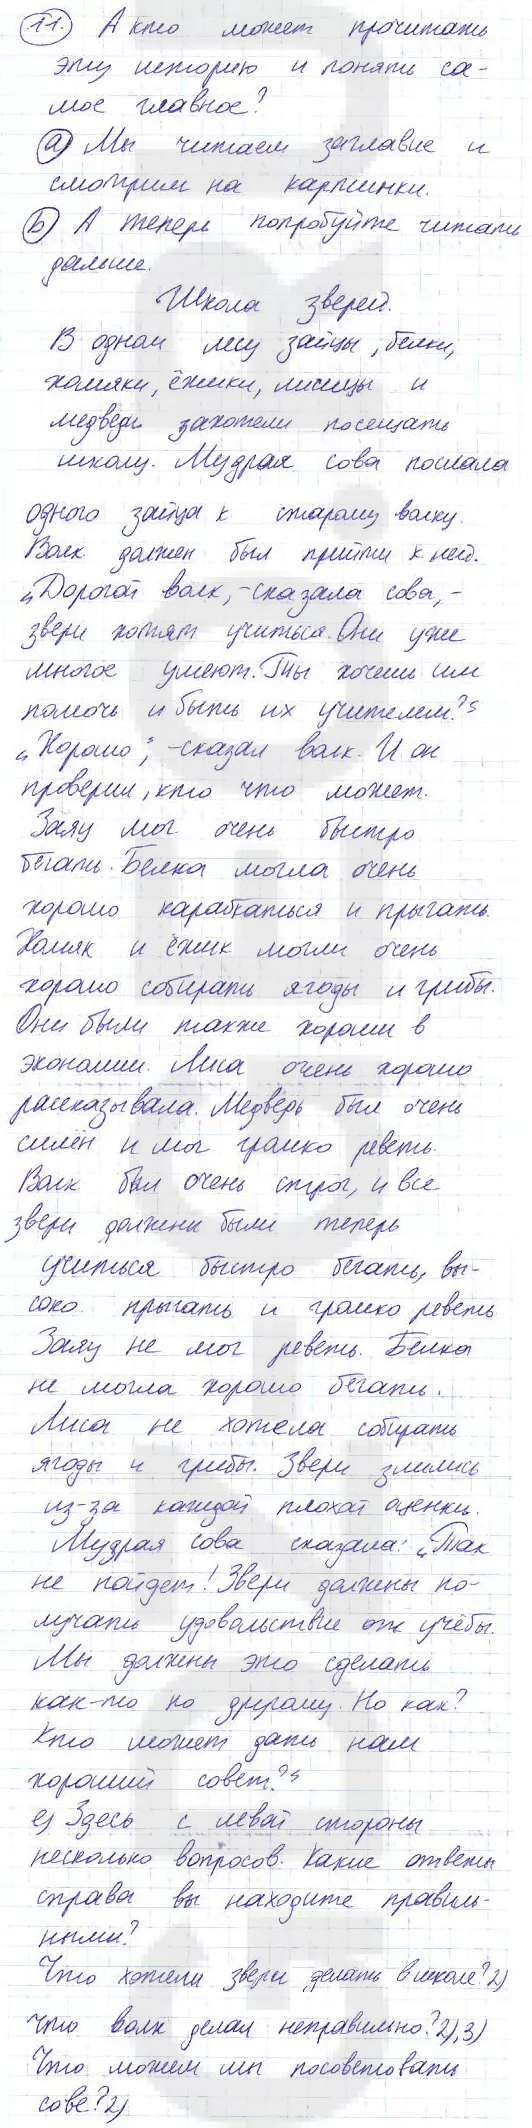 11. А кто может прочитать
эту историю и понять са-
мое главное?
a) Мы читаем заглавие и
смотрим на картинки.
b) А теперь попробуйте читать
дальше.
Школа зверей.
В одном лесу зайцы, белки,
хомяки, ёжики, лисицы и
медведи захотели посещать
школу. Мудрая сова послала
одного зайца к старому волку.
Волк должен был прийти к ней.
„Дорогой волк, - сказала сова, -
звери хотят учиться. Они уже
многое умеют. Ты хочешь им
помочь и быть их учителем?“
„Хорошо“, - сказал волк. И он
проверил, кто что может.
Заяц мог очень быстро
бегать. Белка могла очень
хорошо карабкаться и прыгать.
Хомяк и ёжик могли очень
хорошо собирать ягоды и грибы.
Они были также хороши в
экономии. Лиса очень хорошо
рассказывала. Медведь был очень
силён и мог громко реветь.
Волк был очень строг, и все
звери должны были теперь
учиться быстро бегать, вы-
соко прыгать и громко реветь
Заяц не мог реветь. Белка
не могла хорошо бегать.
Лиса не хотела собирать
ягоды и грибы. Звери злились
из-за каждой плохой оценки.
Мудрая сова сказала: „Так
не пойдет! Звери должны по-
лучать удовольствие от учёбы.
Мы должны это сделать
как-то по другому. Но как?
Кто может дать нам
хороший совет?“
e) Здесь с левой стороны
несколько вопросов. Какие ответы
справа вы находите правиль-
ными?
Что хотели звери делать в школе? 2)
Что волк делал неправильно? 2), 3)
Что можем мы посоветовать
сове? 2)